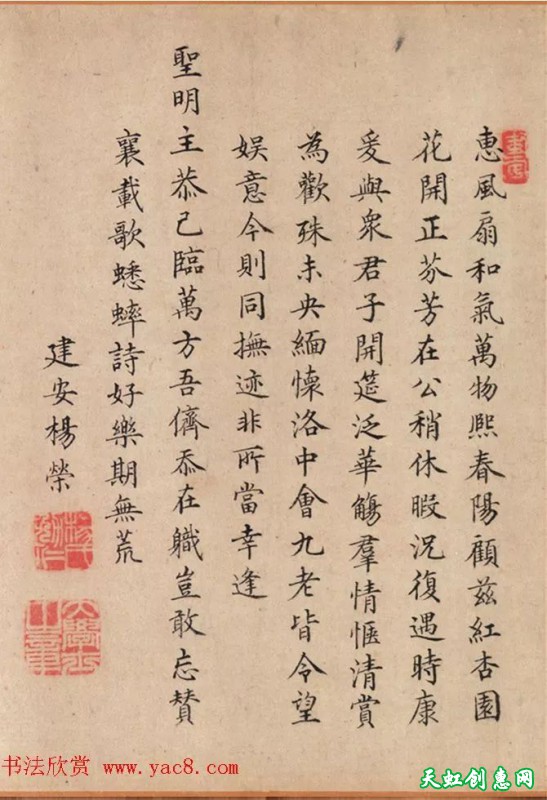 惠風扇和氣萬物熙春陽顧茲紅杏園
花開正芬芳在公稍休暇況復遇時康
爰與眾君子開筵泛華觴羣情愜清賞
為歡殊未央緬懷洛中會九老皆令望
娱意今則同撫迹非所當幸逢
聖明主恭己臨萬方吾儕忝在職豈敢忘賛
襄載歌蟋蟀詩好樂期無荒
建安楊榮
楊氏勉仁
书法欣赏 www.yac8.com
天虹创惠网